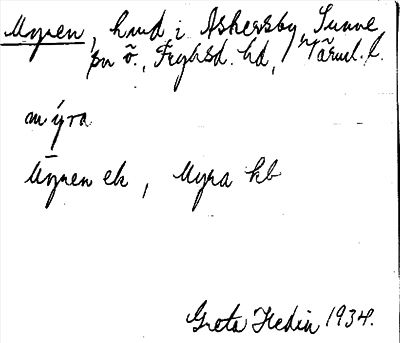 Myren, hmd i Askersby, Sunne
sn ö., Fryksd. hd, Värml. l.
mýra
Myren ek, Myra kb
Greta Hedin 1934.